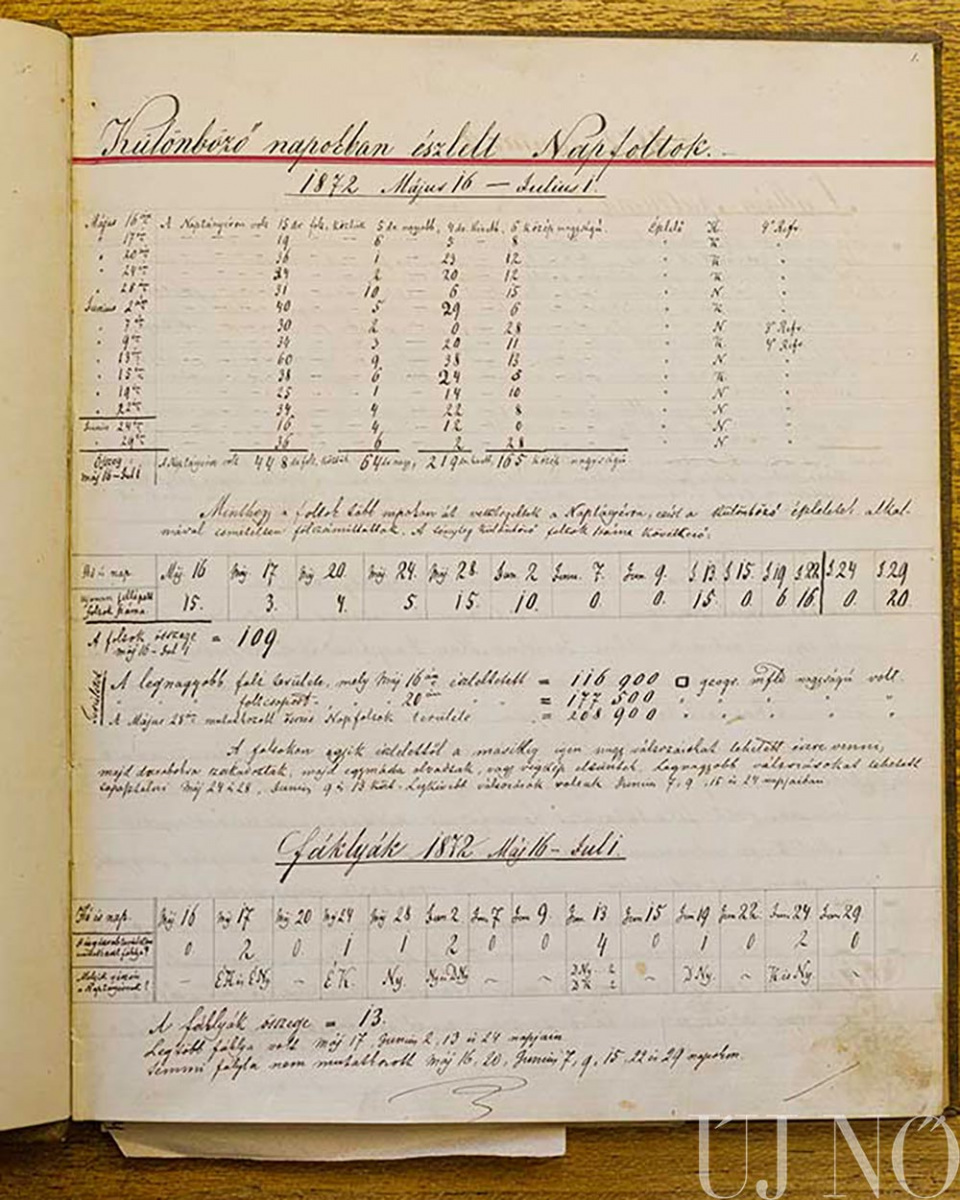 1.
Különböző napokban észlelt Napfoltok.
1872 Május 16 — Julius 1.
Május 16án A Naptányéron volt 15 db folt, köztük 5 db nagyobb, 4 db kisebb, 6 közép nagyságú. Észlelő K. 4" Refr.
" 17én — 19 — 6 — 5 — 8 " K. "
" 20án — 36 — 1 — 23 — 12 " K. "
" 24én — 34 — 2 — 20 — 12 " K. "
" 28án — 31 — 10 — 6 — 15 " N. "
Junius 2án — 40 — 5 — 29 — 6 " K. "
" 7én — 30 — 2 — 0 — 28 " N. 3" Refr.
" 9én — 34 — 3 — 20 — 11 " K. 4" Refr.
" 13án — 60 — 9 — 38 — 13 " N. "
" 15én — 38 — 6 — 24 — 8 " K. "
" 19én — 25 — 1 — 14 — 10 " N. "
" 22én — 34 — 4 — 22 — 8 " N. "
Junius 24én — 16 — 4 — 12 — 0 " N. "
" 29én — 36 — 6 — 2 — 28 " N. "
Összeg A Naptányéron volt 448 db folt, köztük 64 db nagy, 219 db kisebb, 165 közép nagyságú
Máj 16 – Jul 1
Minthogy a foltok több napokon át vesztegeltek a Naptányéron, ezért a különböző észleletek alkal-
mával ismételten fölszámíttattak. A tényleg különböző foltok száma következő:
Hó és nap. Máj 16 Máj 17 Máj 20. Máj 24. Máj 28. Jun. 2 Jun. 7. Jun 9. J. 13. J. 15. J. 19 J. 22 J. 24 J. 29
Újonnan fellépett foltok száma. 15. 3. 4. 5. 15. 10. 0. 0. 15. 0. 6. 16. 0. 20.
A foltok összege = 109
máj 16 – Jul 1
Területek
A legnagyobb folt területe, mely Máj 16án észleltetett = 116 900 □ geogr. mfld nagyságú volt.
" " foltcsoport " " 20án " = 177 500 " " " "
A Május 28án mutatkozott összes Napfoltok területe = 208 900 " " " "
A foltokon egyik észlelettől a másikig igen nagy változásokat lehetett észre venni,
majd darabokra szakadoztak, majd egymásba olvadtak, vagy végkép eltüntek. Legnagyobb változásokat lehetett
tapasztalni Máj 24 és 28, Junius 9 és 13 közt. Legkisebb változások voltak Junius 7, 9, 15 és 24 napjaiban
Fáklyák 1872 Máj 16 – Jul 1.
Hó és nap. Máj 16 Máj 17 Máj 20 Máj 24 Máj 28 Jun 2 Jun 7 Jun 9. Jun 13 Jun 15 Jun 19 Jun 22 Jun 24 Jun 29.
fáklya? 0 2 0 1 1 2 0 0 4 0 1 0 2 0
Melyik részén a Naptányérnak? — ÉK és ÉNy — ÉK. Ny. Ny és DNy ~ ~ DNy – 2 DK – 2 ~ DNy. ~ K és Ny. ~
A fáklyák összege = 13.
Legtöbb fáklya volt Máj 17, Junius 2, 13 és 24 napjain
Semmi fáklya nem mutatkozott Máj 16, 20, Junius 7, 9, 15, 22 és 29 napokon.
ÚJ NŐ